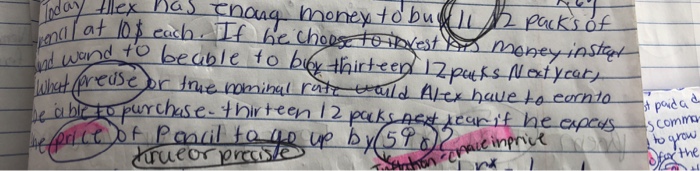 Today Alex has enoug money to buy 11 12 packs of
pencil at 10$ each. If he choose to invest his money instead
and wand to be able to buy thirteen 12 packs Next year,
What precise or true nominal rate would Alex have to earn to
be able to purchase thirteen 12 packs next year if he expects
the price of Pencil to go up by (5%)?
true or precise
inflation = change in price
paid a d
s commo
to grow
for the